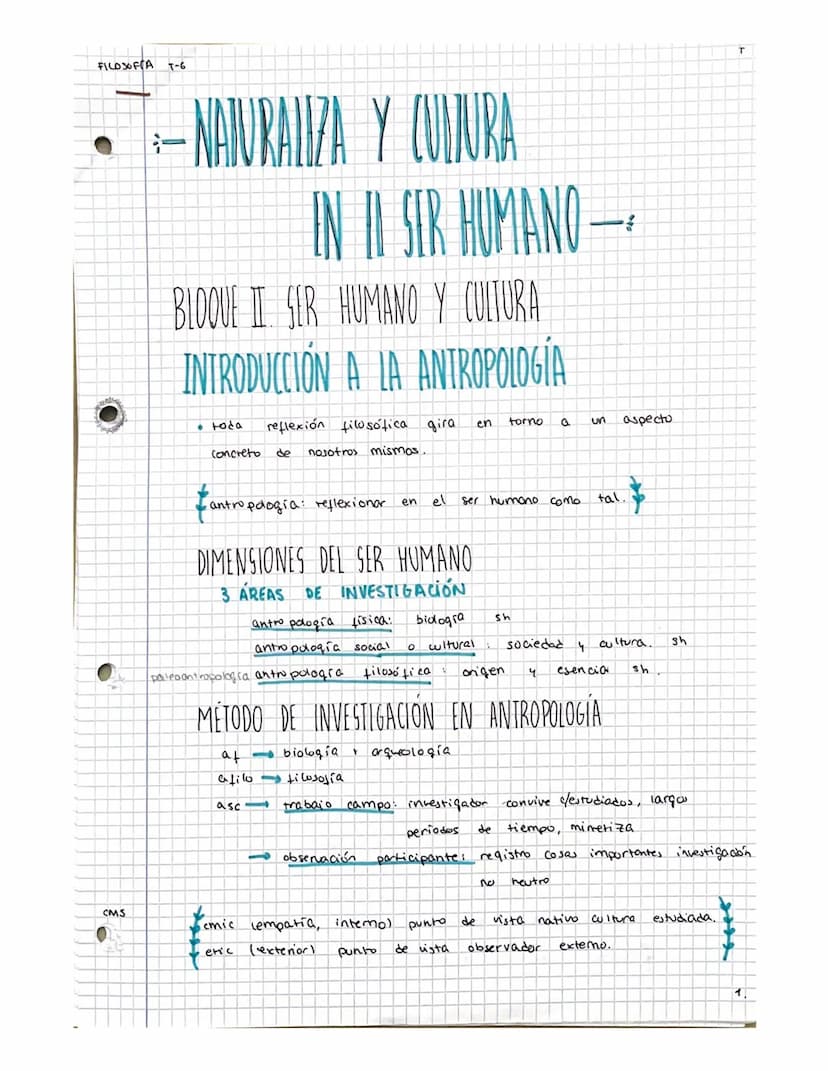 T
FILOSOFÍA T-6
NATURALEZA Y CULTURA
EN EL SER HUMANO
BLOQUE II. SER HUMANO Y CULTURA
INTRODUCCIÓN A LA ANTROPOLOGÍA
• toda reflexión filosófica gira en torno a un aspecto
concreto de nosotros mismos.
antropología: reflexionar en el ser humano como tal.
DIMENSIONES DEL SER HUMANO
3 ÁREAS DE INVESTIGACIÓN
antropología física: biología sh
antropología social o cultural: sociedad y cultura. sh
paleoantropología antropología filosófica: origen y esencia sh.
MÉTODO DE INVESTIGACIÓN EN ANTROPOLOGÍA
af → biología + arqueología
afilo → filosofía
asc → trabajo campo: investigador convive c/estudiados, largos
períodos de tiempo, mimetiza
→ observación participante: registro cosas importantes investigación
no neutro
CMS
emic (empatía, interno) punto de vista nativo cultura estudiada.
etic (exterior) punto de vista observador externo.
1.